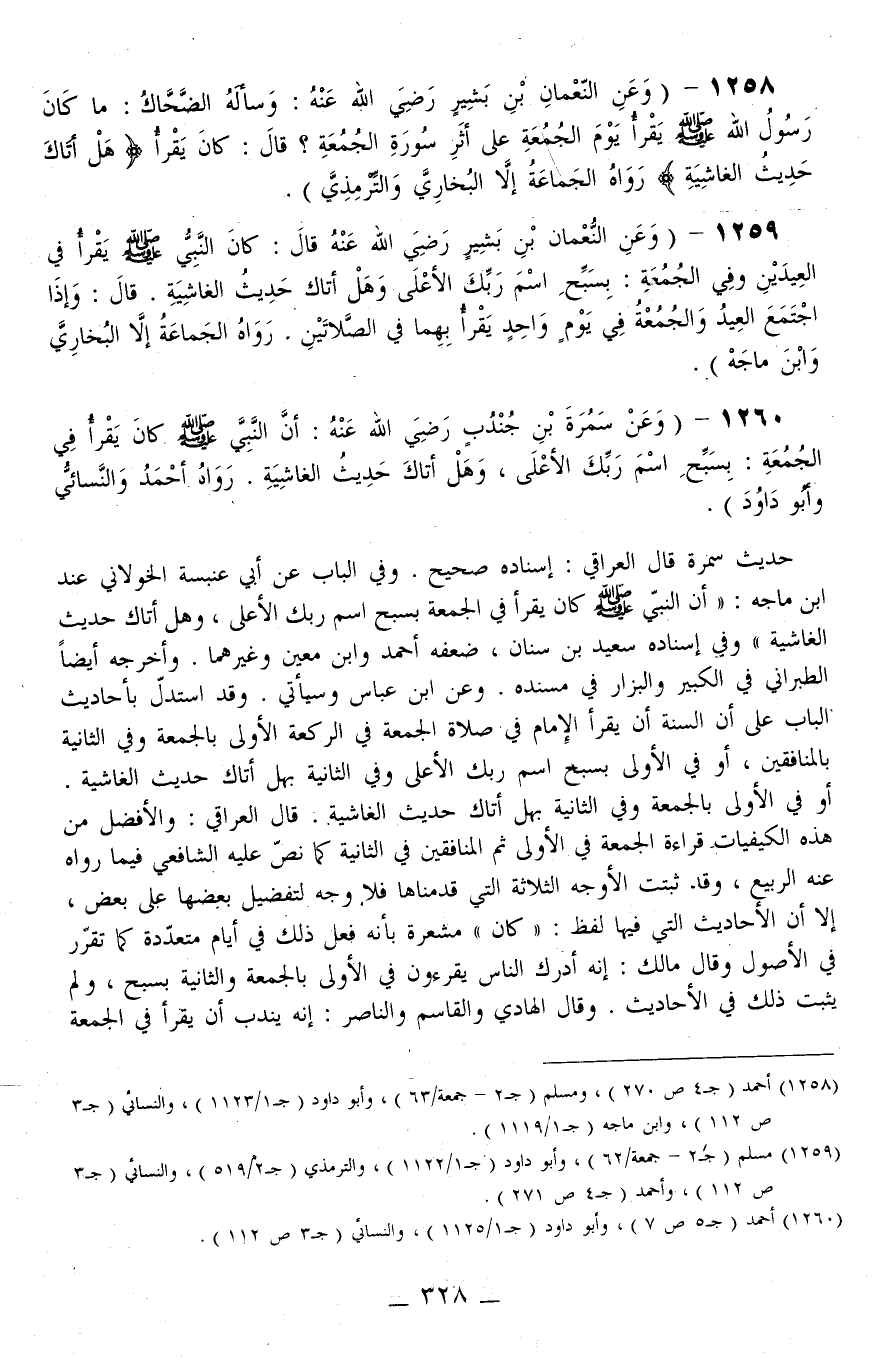 ١٢٥٨ - ( وَعَنِ النّعْمانِ بْنِ بَشِيرٍ رَضِيَ الله عَنْهُ : وَسألَهُ الضَّحَّاكُ : ما كَانَ
رَسُولُ الله ﷺ يَقْرأُ يَوْمَ الجُمُعَةِ على أثَرِ سُورَةِ الجُمُعَةِ ؟ قالَ : كانَ يَقْرأُ ﴿ هَلْ أتَاكَ
حَدِيثُ الغاشِيَةِ ﴾ رَوَاهُ الجَماعَةُ إلَّا البُخارِيَّ وَالتِّرْمِذِيَّ ) .
١٢٥٩ - ( وَعَنِ النُّعْمان بْنِ بَشِيرٍ رَضِيَ الله عَنْهُ قالَ : كانَ النَّبِيُّ ﷺ يَقْرأُ في
العِيدَيْنِ وفِي الجُمُعَةِ : بِسَبِّحِ اسْمَ رَبِّكَ الأعْلَى وَهَلْ أتاكَ حَدِيثُ الغاشِيَةِ . قالَ : وَإذَا
اجْتَمَعَ العِيدُ وَالجُمُعْةُ فِي يَوْمٍ وَاحِدٍ يَقْرأُ بِهِما في الصَّلاتَيْنِ . رَوَاهُ الجَماعَةُ إلَّا البُخارِيَّ
وَابْنَ ماجَهْ ) .
١٢٦٠ - ( وَعَنْ سَمُرَةَ بْنِ جُنْدُبٍ رَضِيَ الله عَنْهُ : أنَّ النَّبِيَّ ﷺ كانَ يَقْرأُ فِي
الجُمُعَةِ : بِسَبِّحِ اسْمَ رَبِّكَ الأعْلَى ، وَهَلْ أتاكَ حَدِيثُ الغاشِيَةِ . رَوَاهُ أحْمَدُ وَالنَّسائيُّ
وأبُو دَاوُدَ ) .
حديث سمرة قال العراقي : إسناده صحيح . وفي الباب عن أبي عنبسة الخولاني عند
ابن ماجه : « أن النبيّ ﷺ كان يقرأ في الجمعة بسبح اسم ربك الأعلى ، وهل أتاك حديث
الغاشية » وفي إسناده سعيد بن سنان ، ضعفه أحمد وابن معين وغيرهما . وأخرجه أيضاً
الطبراني في الكبير والبزار في مسنده . وعن ابن عباس وسيأتي . وقد استدلّ بأحاديث
الباب على أن السنة أن يقرأ الإمام في صلاة الجمعة في الركعة الأولى بالجمعة وفي الثانية
بالمنافقين ، أو في الأولى بسبح اسم ربك الأعلى وفي الثانية بهل أتاك حديث الغاشية .
أو في الأولى بالجمعة وفي الثانية بهل أتاك حديث الغاشية . قال العراقي : والأفضل من
هذه الكيفيات قراءة الجمعة في الأولى ثم المنافقين في الثانية كما نصّ عليه الشافعي فيما رواه
عنه الربيع ، وقد ثبتت الأوجه الثلاثة التي قدمناها فلا وجه لتفضيل بعضها على بعض ،
إلا أن الأحاديث التي فيها لفظ : « كان » مشعرة بأنه فعل ذلك في أيام متعدّدة كما تقرّر
في الأصول وقال مالك : إنه أدرك الناس يقرءون في الأولى بالجمعة والثانية بسبح ، ولم
يثبت ذلك في الأحاديث . وقال الهادي والقاسم والناصر : إنه يندب أن يقرأ في الجمعة
(١٢٥٨) أحمد ( جـ٤ ص ٢٧٠ ) ، ومسلم ( جـ٢ - جمعة/٦٣ ) ، وأبو داود ( جـ١١٢٣/١ ) ، والنسائي ( جـ٣
ص ١١٢ ) ، وابن ماجه ( جـ١١١٩/١ ) .
(١٢٥٩) مسلم ( جـ٢ - جمعة/٦٢ ) ، وأبو داود ( جـ١١٢٢/١ ) ، والترمذي ( جـ٥١٩/٢ ) ، والنسائي ( جـ٣
ص ١١٢ ) ، وأحمد ( جـ٤ ص ٢٧١ ) .
(١٢٦٠) أحمد ( جـ٥ ص ٧ ) ، وأبو داود ( جـ١١٢٥/١ ) ، والنسائي ( جـ٣ ص ١١٢ ) .
_ ٣٢٨ _